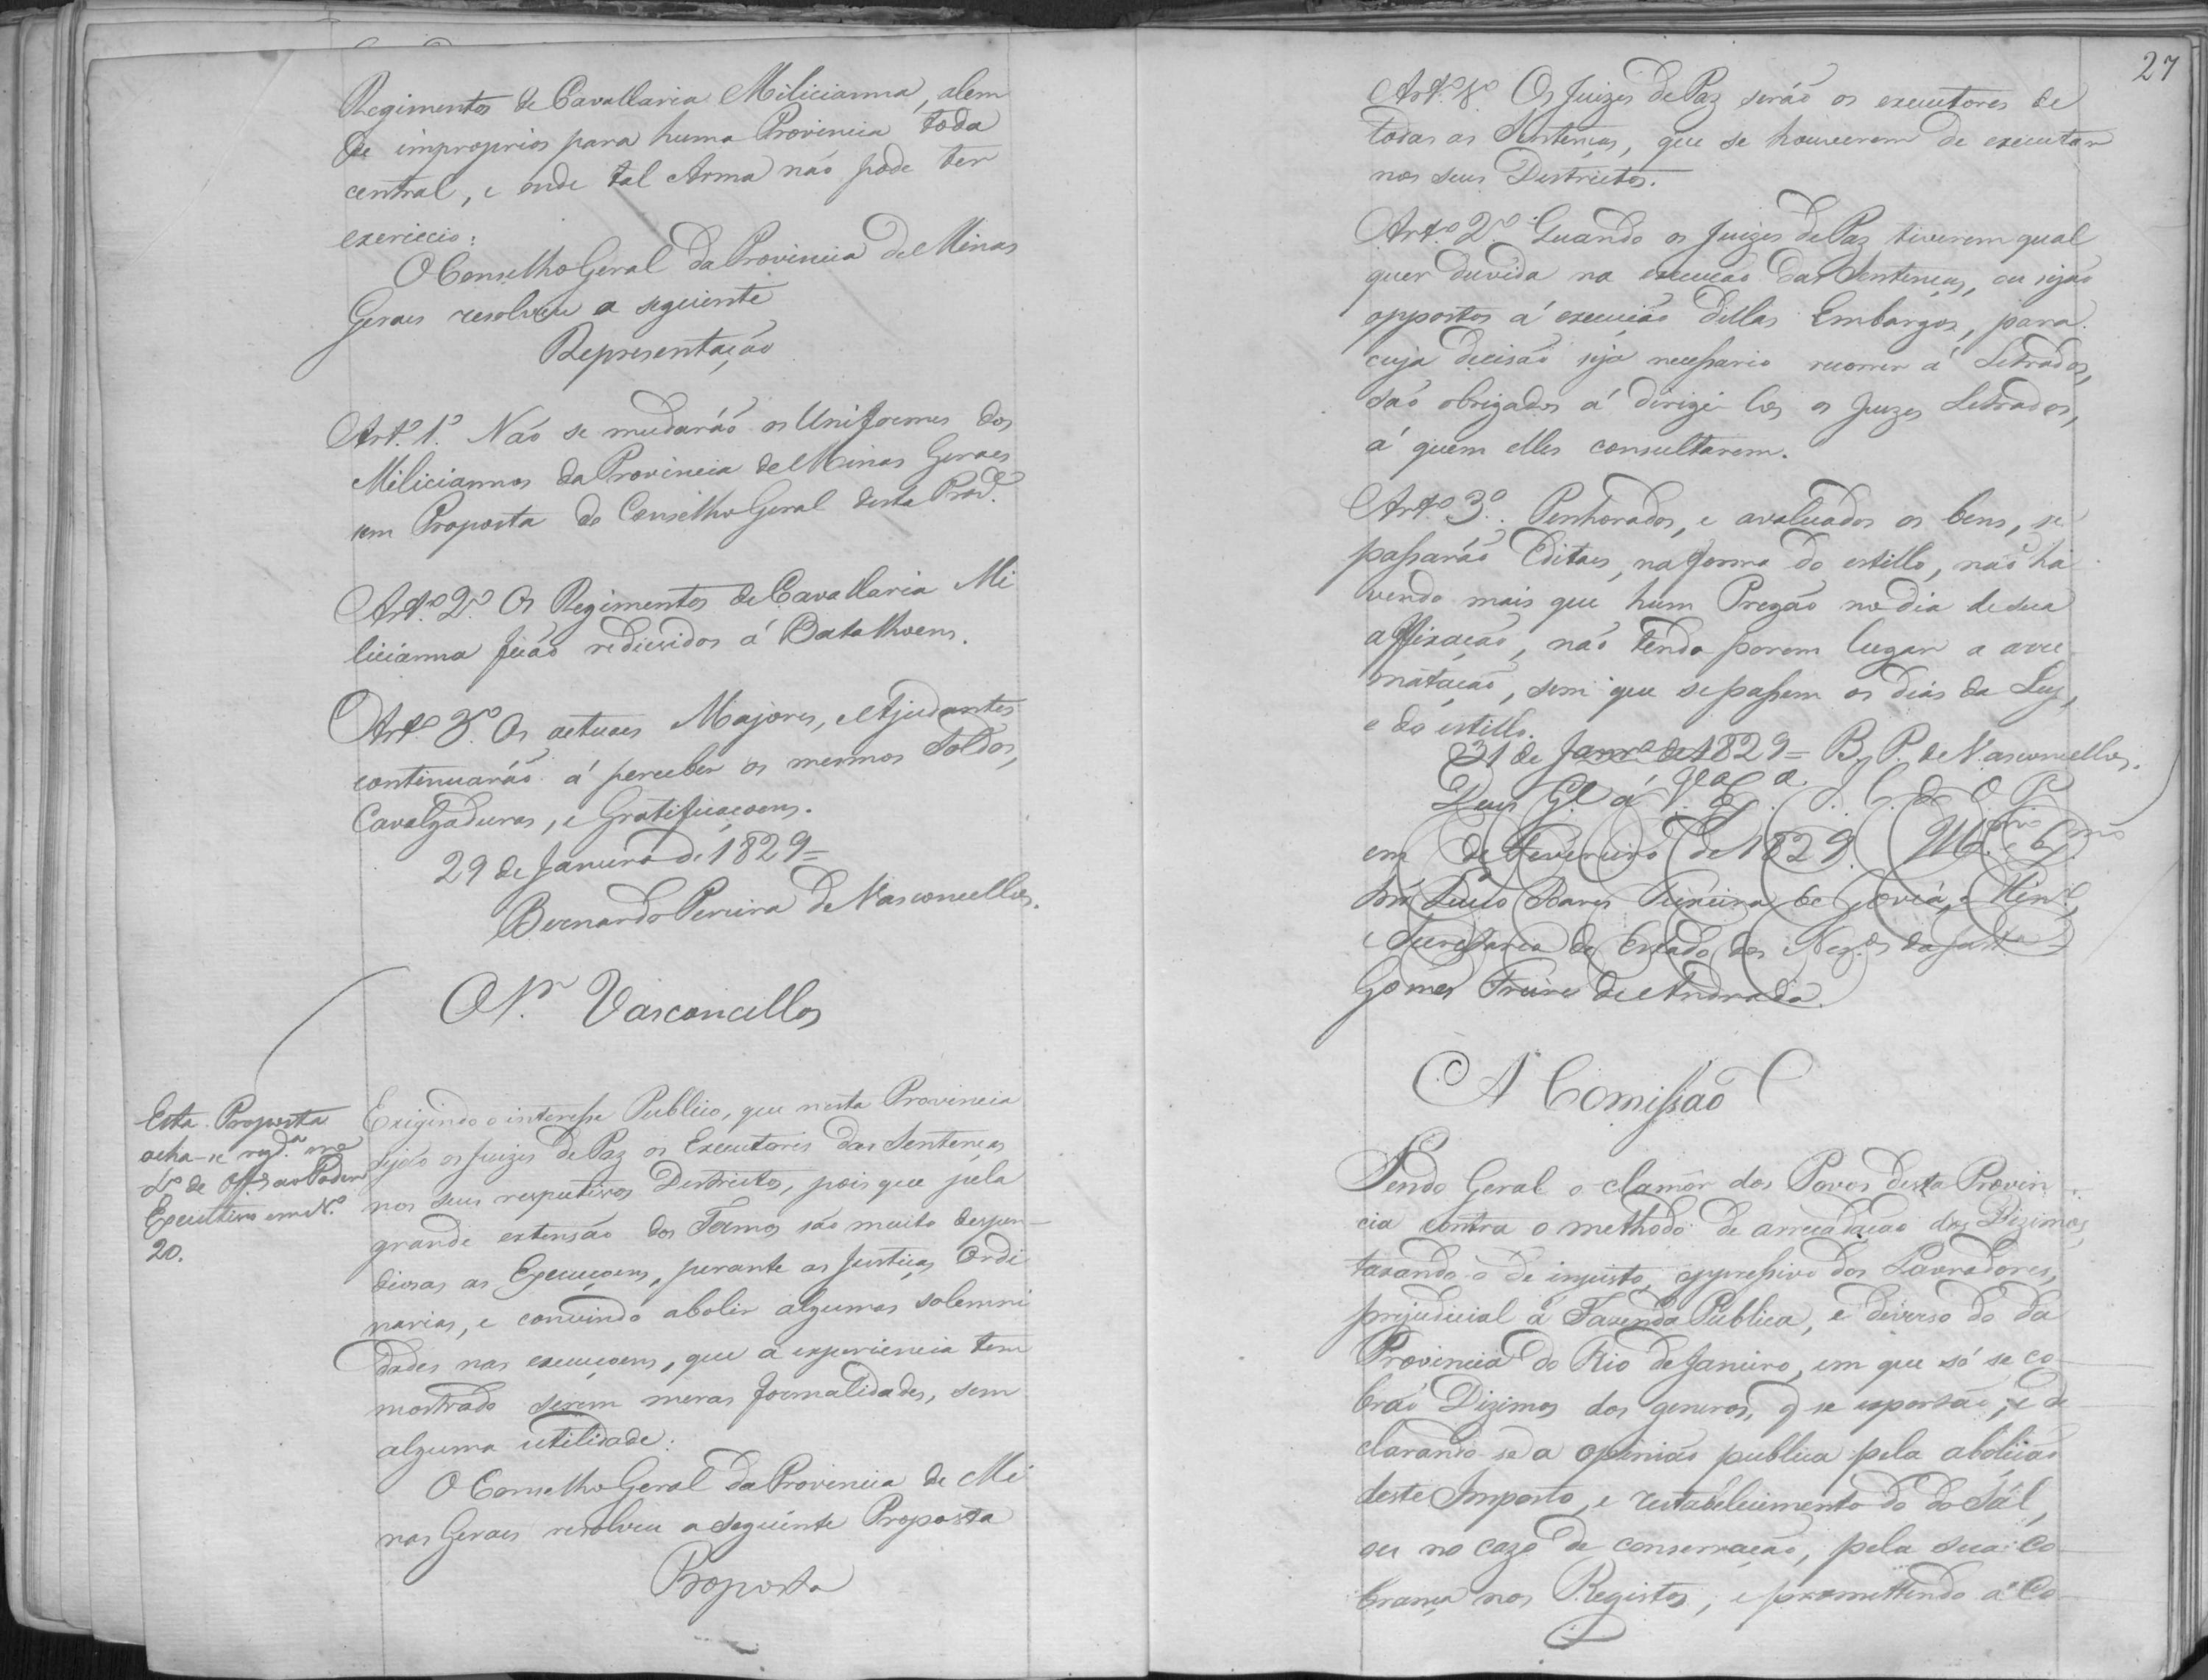 Regimentos de Cavallaria Milicianna, alem
de improprios para huma Provincia toda
central, e onde tal Arma não pode ter
exercicio:
O Conselho Geral da Provincia de Minas
Geraes resolveu a seguinte
Representação
Art.º 1.º Não se mudaráõ os Uniformes dos
Miliciannos da Provincia de Minas Geraes
sem Proposta do Conselho Geral desta Prov.ª
Art.º 2.º Os Regimentos de Cavallaria Mi
licianna ficão redusidos á Batalhoens.
Art.º 3.º Os actuaes Majores, e Ajudantes
continuaráõ á perceber os mesmos Soldos,
Cavalgaduras, e Gratificaçoens.
29 de Janeiro de 1829=
Bernardo Pereira de Vasconcellos.
O Sr. Vasconcellos
Esta Proposta
acha-se reg.da no
L.º de Off.os ao Poder
Executivo em N.º
20.
Exigindo o interesse Publico, que nesta Provincia
sejão os Juizes de Paz os Executores das Sentenças
nos seus respectivos Destrictos, pois que pela
grande extensão dos Termos são muito despen-
diosas as Execuçoens, perante as Justiças Ordi
narias, e convindo abolir algumas solemni
dades nas execuçoens, que a experiencia tem
mostrado serem meras formalidades, sem
alguma utilidade:
O Conselho Geral da Provincia de Mi
nas Geraes resolveu a seguinte Proposta
Proposta
27
Art.º 1.º Os Juizes de Paz serão os executores de
todas as Sentenças, que se houverem de executar
nos seus Destrictos.
Art.º 2.º Quando os Juizes de Paz tiverem qual
quer duvida na execução das Sentenças, ou sejão
oppostos á execução dellas Embargos, para
cuja decisão seja necessario recorrer á Letrados,
são obrigados á dirigi-los os Juizes Letrados,
á quem elles consultarem.
Art.º 3.º Penhorados, e avaliados os bens, se
passarão Editaes, na forma do estillo, não ha
vendo mais que hum Pregão no dia de sua
affixação, não tendo porem lugar a arre
matação, sem que se passem os dias da Ley,
e do estillo.
31 de Janr.º de 1829= B. P. de Vasconcellos.
Deos G.e á V. Ex.ª
em de Fevereiro de 1829. Ill.mo e Ex.mo
Snr Lucio Soares Teixeira de Gouvêa, Min.º,
e Secretario de Estado dos Neg.os da Just.ª =
Gomes Freire de Andrada.
A Comissão
Sendo Geral o clamôr dos Povos desta Provin
cia contra o methodo de arrecadação dos Dizimos,
taxando-o de injusto, oppressivo dos Lavradores,
prejudicial á Fazenda Publica, e diverso do da
Provincia do Rio de Janeiro, em que só se co-
brão Dizimos dos generos, q se exportão; e de
clarando-se a opinião publica pela abolição
deste Imposto, e restabelecimento do do Sál,
ou no cazo de conservação, pela sua co-
brança nos Registos, e promettendo a Co-